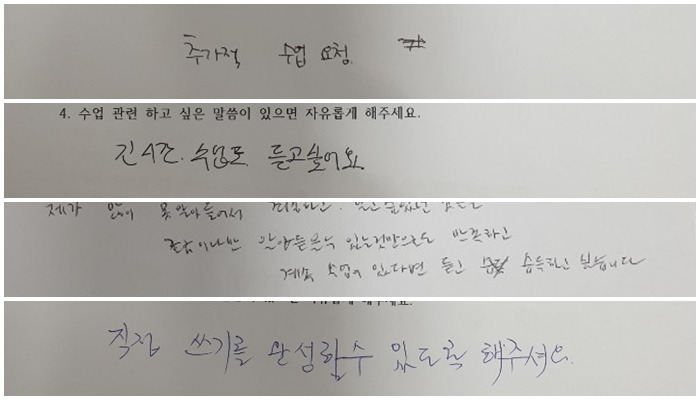 추가적 수업 요청.
4. 수업 관련 하고 싶은 말씀이 있으면 자유롭게 해주세요.
긴 시간. 수업도 듣고싶어요.
제가 많이 못 알아들어서
알아들을수 있는것만으로도 만족하고
계속 수업이 있다면 듣고 습득하고 싶습니다
직접 쓰기를 완성할수 있도록 해주셔요.